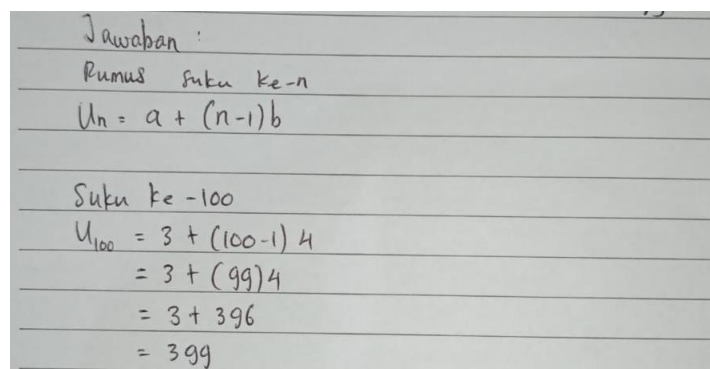 Jawaban :
Rumus suku ke-n
Un = a + (n-1)b
Suku ke-100
U100 = 3 + (100-1) 4
= 3 + (99)4
= 3 + 396
= 399